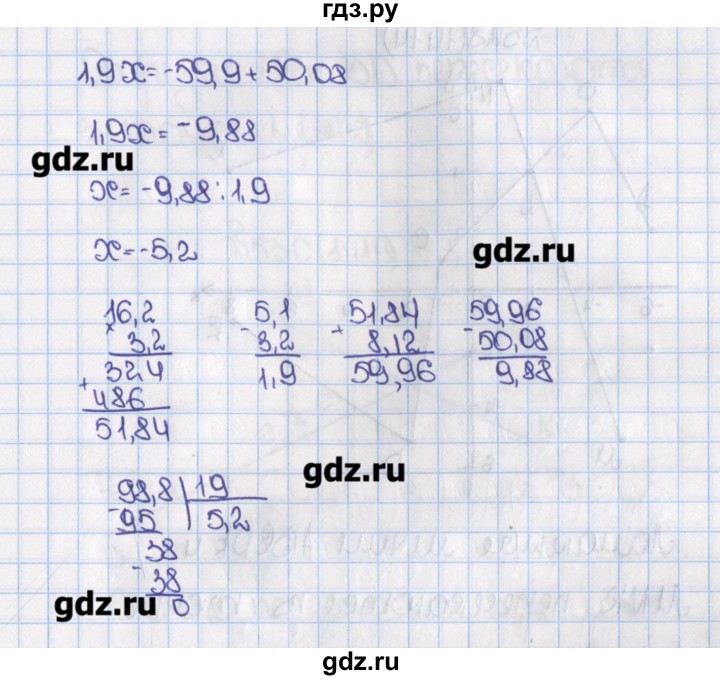 гдз.ру
1,9x=-59,9+50,08
1,9x=-9,88
gdz.ru
x=-9,88:1,9
x=-5,2
gdz.ru
16,2 5,1 51,84 59,96
× 3,2 - 3,2 + 8,12 - 50,08
324 1,9 59,96 9,88
+ 486
51,84
gdz.ru
98,8 19
- 95 5,2
38
- 38
0
gdz.ru
gdz.ru